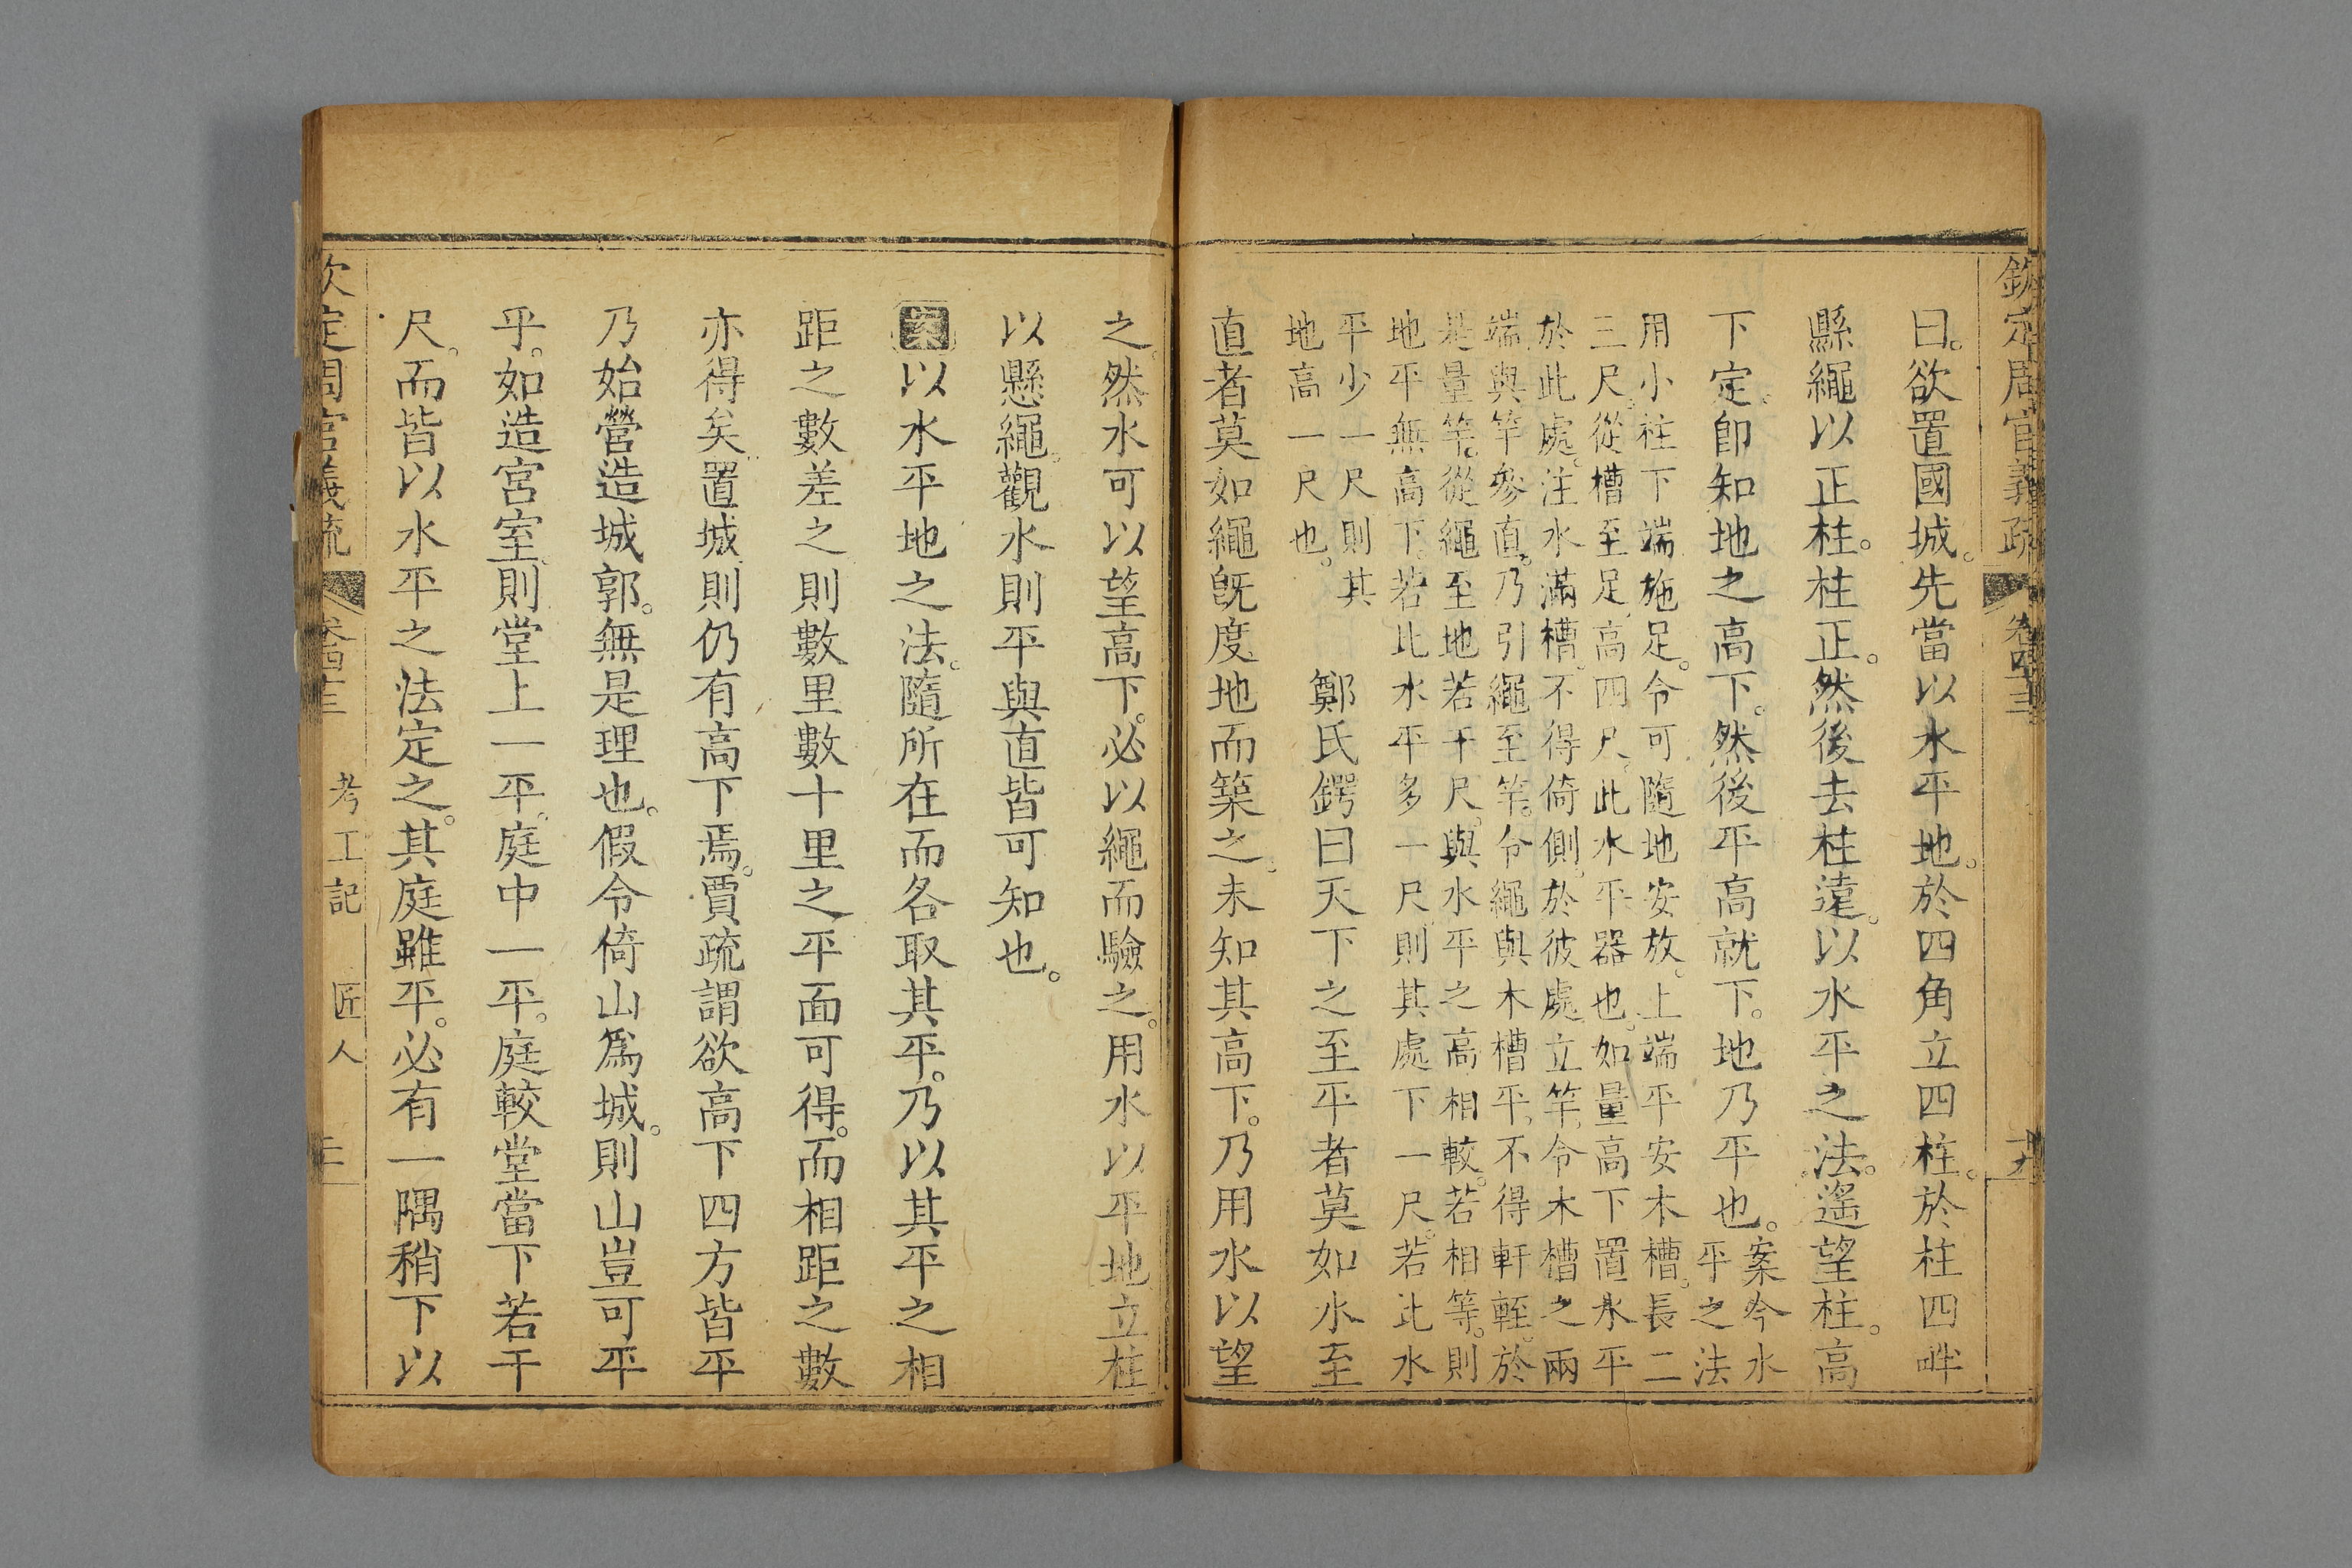 欽定周官義疏 卷四十三
曰。欲置國城。先當以水平地。於四角立四柱。於柱四畔
縣繩以正柱。柱正。然後去柱遠。以水平之法。遙望柱。高
下定。卽知地之高下。然後平高就下。地乃平也。案今水
平之法
用小柱下端施足。令可隨地安放。上端平安木槽。長二
三尺。從槽至足高四尺。此水平器也。如量高下置水平
於此處。注水滿槽。不得倚側。於彼處立竿。令木槽之兩
端與竿參直。乃引繩至竿。令繩與木槽平。不得軒輊。於
是量竿。從繩至地若干尺。與水平之高相較。若相等。則
地平無高下。若比水平多一尺。則其處下一尺。若比水
平少一尺則其
地高一尺也。
鄭氏鍔曰天下之至平者莫如水至
直者莫如繩旣度地而築之。未知其高下。乃用水以望
之。然水可以望高下。必以繩而驗之。用水以平地立柱
以懸繩。觀水則平與直皆可知也。
案以水平地之法。隨所在而各取其平。乃以其平之相
距之數差之則數里數十里之平面可得。而相距之數
亦得矣置城則仍有高下焉。賈疏謂欲高下四方皆平
乃始營造城郭。無是理也。假令倚山爲城。則山豈可平
乎。如造宮室。則堂上一平。庭中一平。庭較堂當下若干
尺。而皆以水平之法定之。其庭雖平。必有一隅稍下以
欽定周官義疏 卷四十三 考工記 匠人